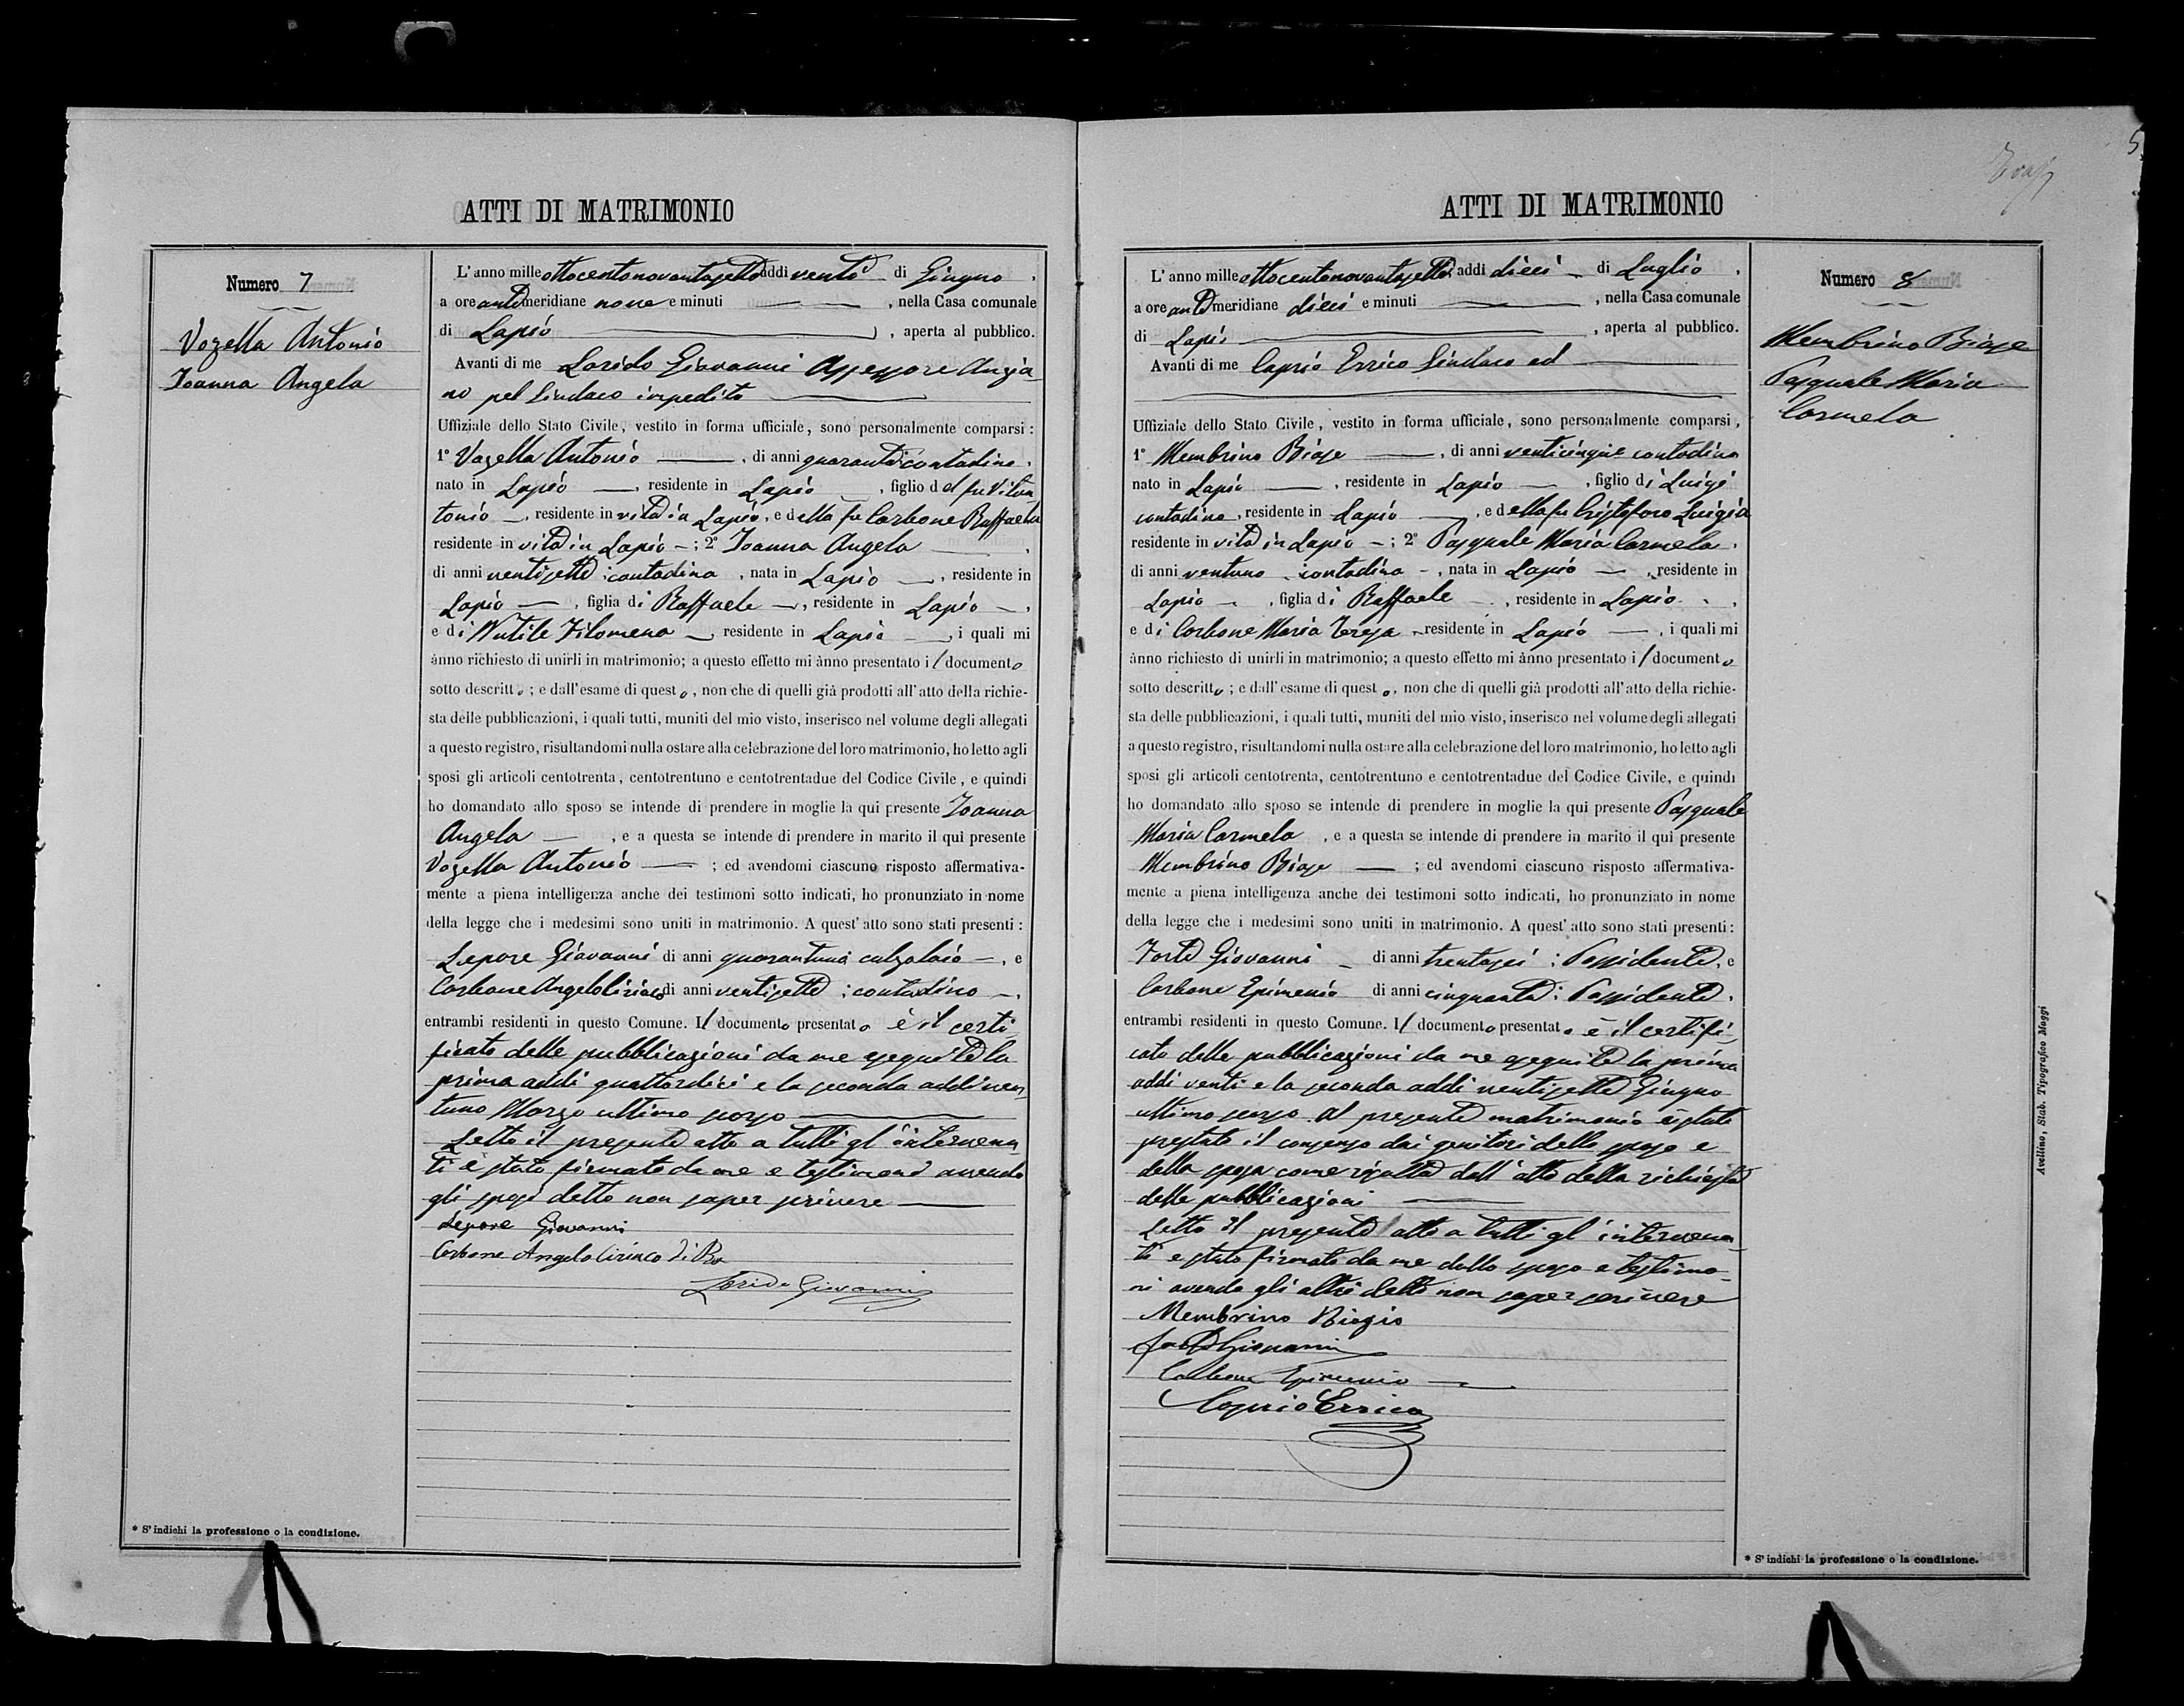 5
ATTI DI MATRIMONIO
Numero 7
Vozella Antonio
Ioanna Angela
L'anno mille ottocentonovantasette addi venti di Giugno,
a ore anti meridiane nove e minuti , nella Casa comunale
di Lapio , aperta al pubblico.
Avanti di me Lorido Giovanni Assessore Anzia-
no pel Sindaco impedito
Uffiziale dello Stato Civile, vestito in forma ufficiale, sono personalmente comparsi:
1° Vozella Antonio , di anni quaranta contadino,
nato in Lapio , residente in Lapio , figlio del fu Vitan
tonio , residente in vita in Lapio, e della fu Carbone Raffaela
residente in vita in Lapio ; 2° Ioanna Angela ,
di anni ventisette : contadina , nata in Lapio , residente in
Lapio , figlia di Raffaele , residente in Lapio ,
e di Nutile Filomena residente in Lapio , i quali mi
ànno richiesto di unirli in matrimonio; a questo effetto mi ànno presentato il documento
sotto descritto; e dall'esame di questo, non che di quelli già prodotti all'atto della richie-
sta delle pubblicazioni, i quali tutti, muniti del mio visto, inserisco nel volume degli allegati
a questo registro, risultandomi nulla ostare alla celebrazione del loro matrimonio, ho letto agli
sposi gli articoli centotrenta, centotrentuno e centotrentadue del Codice Civile, e quindi
ho domandato allo sposo se intende di prendere in moglie la qui presente Ioanna
Angela , e a questa se intende di prendere in marito il qui presente
Vozella Antonio ; ed avendomi ciascuno risposto affermativa-
mente a piena intelligenza anche dei testimoni sotto indicati, ho pronunziato in nome
della legge che i medesimi sono uniti in matrimonio. A quest'atto sono stati presenti:
Lepore Giovanni di anni quarantuno calzolaio , e
Carbone Angelo Ciriaco di anni ventisette : contadino ,
entrambi residenti in questo Comune. Il documento presentato è il certi
ficato delle pubblicazioni da me eseguite la
prima addi quattordici e la seconda addi ven-
tuno Marzo ultimo scorso
Letto il presente atto a tutti gl'intervenu
ti è stato firmato da me e testimoni avendo
gli sposi detto non saper scrivere
Lepore Giovanni
Carbone Angelo Ciriaco di
Lorido Giovanni
* S'indichi la professione o la condizione.
ATTI DI MATRIMONIO
Numero 8
Membrino Biase
Pasquale Maria
Carmela
L'anno mille ottocentonovantasette, addi dieci di Luglio,
a ore anti meridiane dieci e minuti , nella Casa comunale
di Lapio , aperta al pubblico.
Avanti di me Caprio Errico Sindaco ed
Uffiziale dello Stato Civile, vestito in forma ufficiale, sono personalmente comparsi,
1° Membrino Biase , di anni venticinque contadino
nato in Lapio , residente in Lapio , figlio di Luigi
contadino, residente in Lapio , e della fu Cristoforo Luigia
residente in vita in Lapio ; 2° Pasquale Maria Carmela,
di anni ventuno contadina , nata in Lapio , residente in
Lapio , figlia di Raffaele , residente in Lapio ,
e di Carbone Maria Teresa residente in Lapio , i quali mi
ànno richiesto di unirli in matrimonio; a questo effetto mi ànno presentato il documento
sotto descritto; e dall'esame di questo, non che di quelli già prodotti all'atto della richie-
sta delle pubblicazioni, i quali tutti, muniti del mio visto, inserisco nel volume degli allegati
a questo registro, risultandomi nulla ostare alla celebrazione del loro matrimonio, ho letto agli
sposi gli articoli centotrenta, centotrentuno e centotrentadue del Codice Civile, e quindi
ho domandato allo sposo se intende di prendere in moglie la qui presente Pasquale
Maria Carmela , e a questa se intende di prendere in marito il qui presente
Membrino Biase ; ed avendomi ciascuno risposto affermativa-
mente a piena intelligenza anche dei testimoni sotto indicati, ho pronunziato in nome
della legge che i medesimi sono uniti in matrimonio. A quest'atto sono stati presenti:
Forte Giovanni di anni trentasei : Possidente, e
Carbone Epimenio di anni cinquanta : Possidente,
entrambi residenti in questo Comune. Il documento presentato è il certifi-
cato delle pubblicazioni da me eseguite la prima
addi venti e la seconda addi ventisette Giugno
ultimo scorso. Al presente matrimonio è stato
prestato il consenso dai genitori dello sposo e
della sposa come risulta dall'atto della richiesta
delle pubblicazioni
Letto il presente atto a tutti gl'intervenu-
ti è stato firmato da me dallo sposo e testimo-
ni avendo gli altri detto non saper scrivere
Membrino Biagio
Forte Giovanni
Carbone Epimenio
Caprio Errico
* S'indichi la professione o la condizione.
Avellino, Stab. Tipografico Maggi